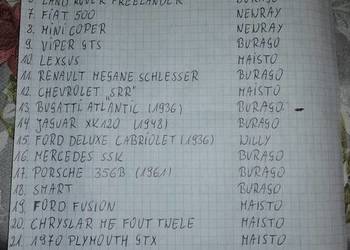 6 LAND ROVER FREELANDER BURAGO
7. FIAT 500 NEWRAY
8. MINI COPER NEWRAY
9. VIPER GTS BURAGO
10. LEXSUS MAISTO
11. RENAULT MEGANE SCHLESSER BURAGO
12. CHEVROLET "SRR" MAISTO
13. BUGATTI ATLANTIC (1936) BURAGO
14. JAGUAR XK120 (1948) BURAGO
15. FORD DELUXE CABRIOLET (1936) WILLY
16. MERCEDES SSK BURAGO
17. PORSCHE 356B (1961) BURAGO
18. SMART BURAGO
19. FORD FUSION MAISTO
20. CHRYSLAR ME FOUT TWELE MAISTO
21. 1970 PLYMOUTH GTX MAISTO